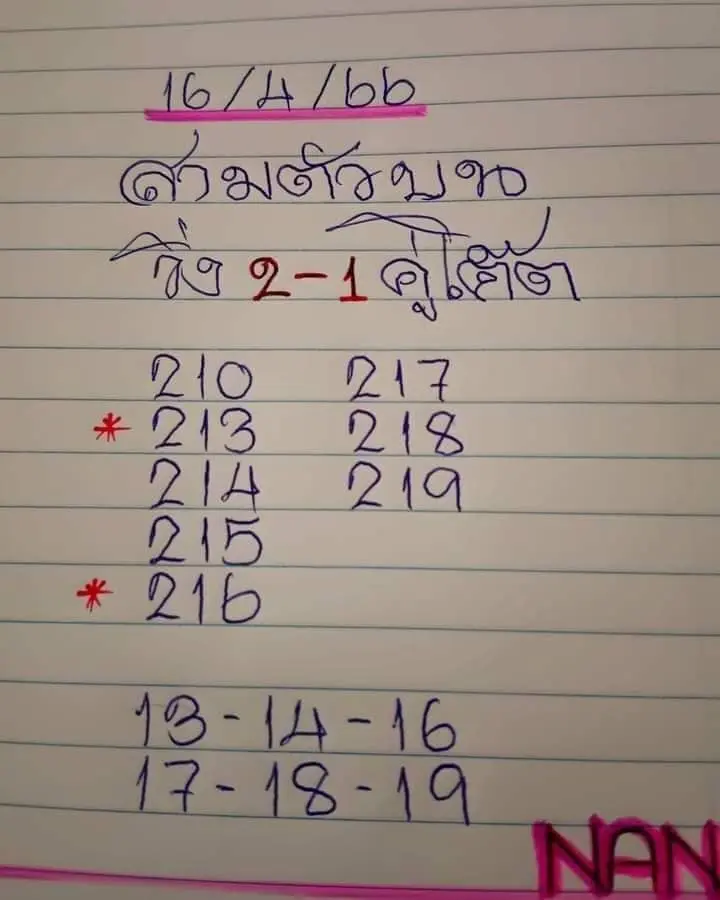 16/4/66
สามตัวบน
วิ่ง 2-1 คู่โต๊ด
210 217
* 213 218
214 219
215
* 216
13-14-16
17-18-19
NAN